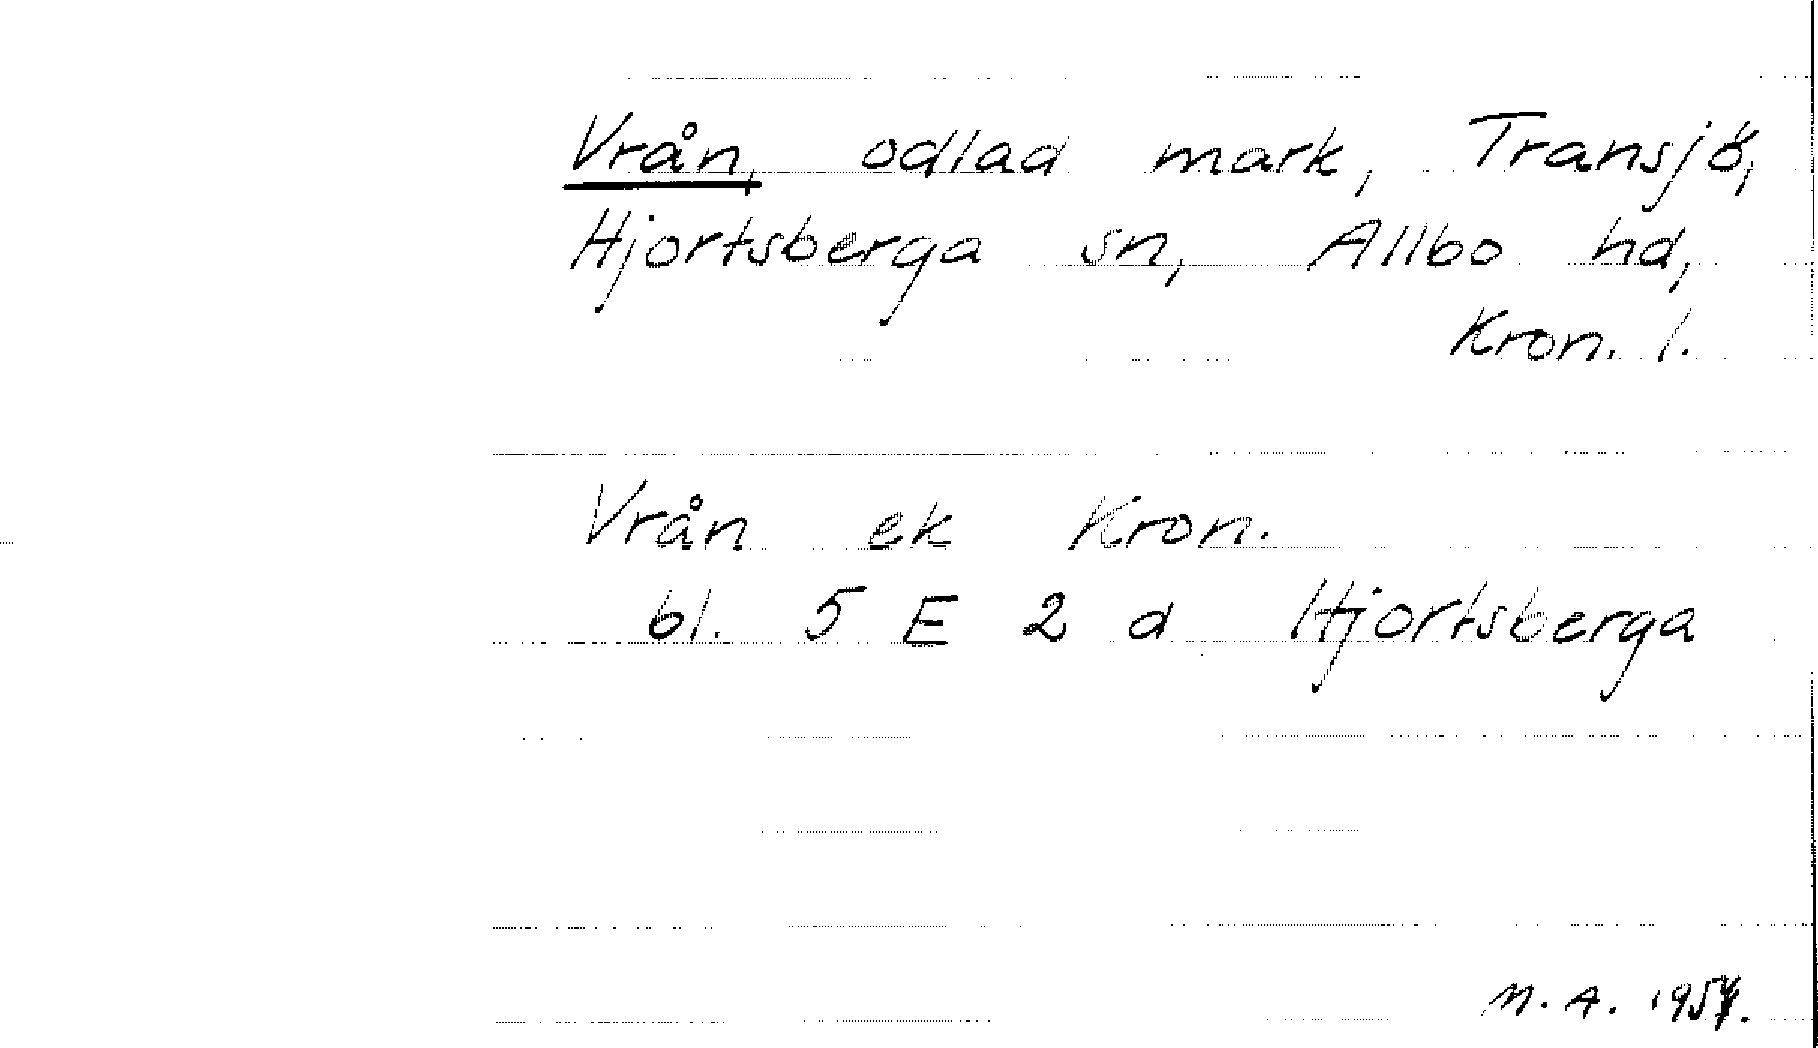 Vrån, odlad mark, Transjö,
Hjortsberga sn, Allbo hd,
Kron. l.
Vrån ek Kron.
bl. 5 E 2 d Hjortsberga
M. A.